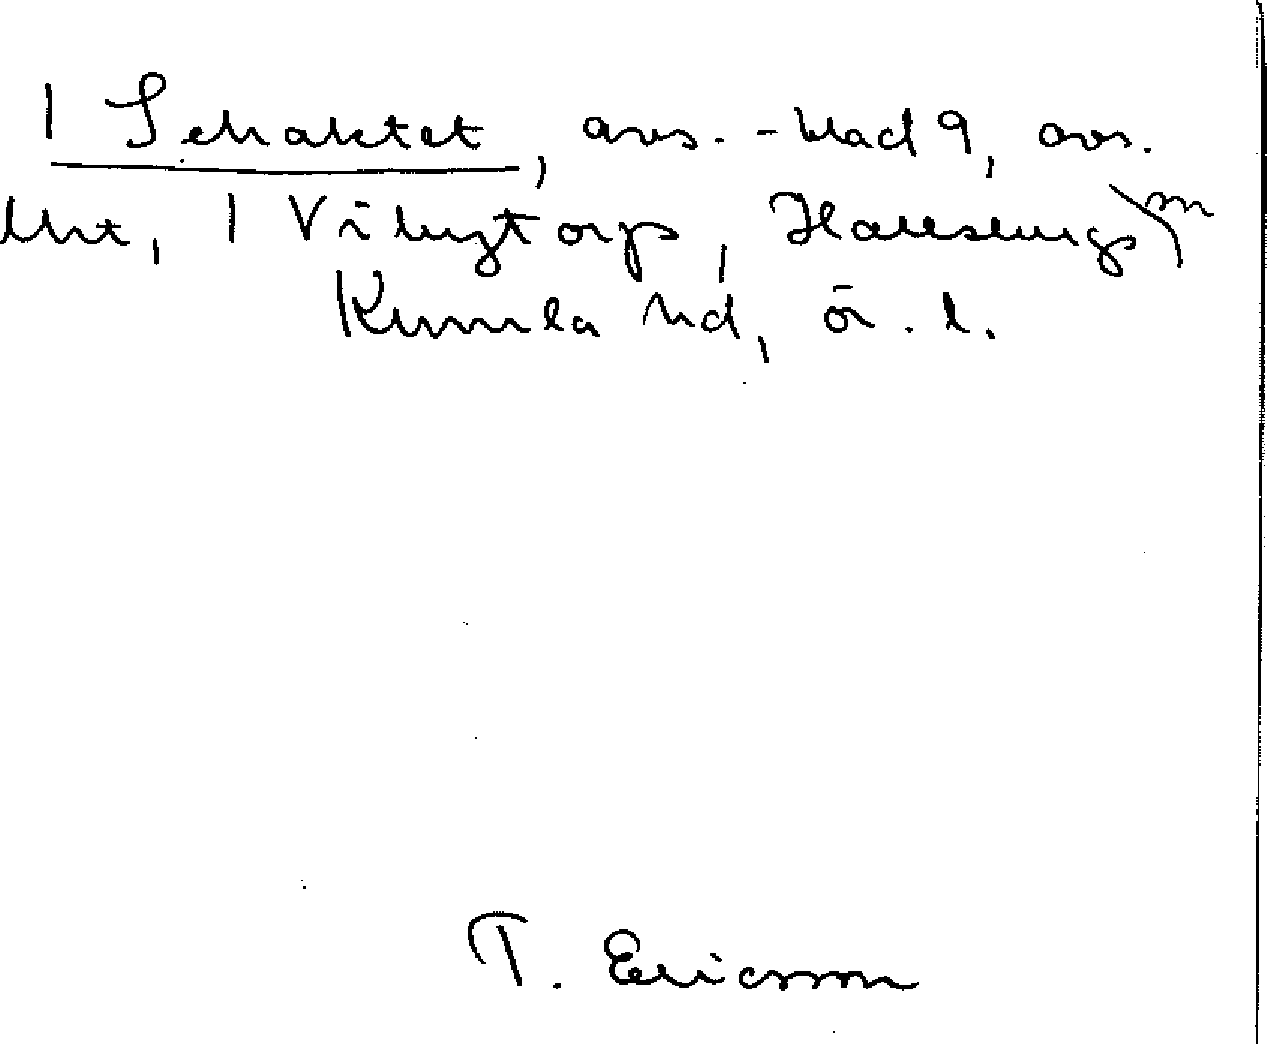 | Schaktet, avs. -blad 9, avs.
| Vibytorp, Hallsbergs
Kumla hd, ör. l.
T. Ericsson